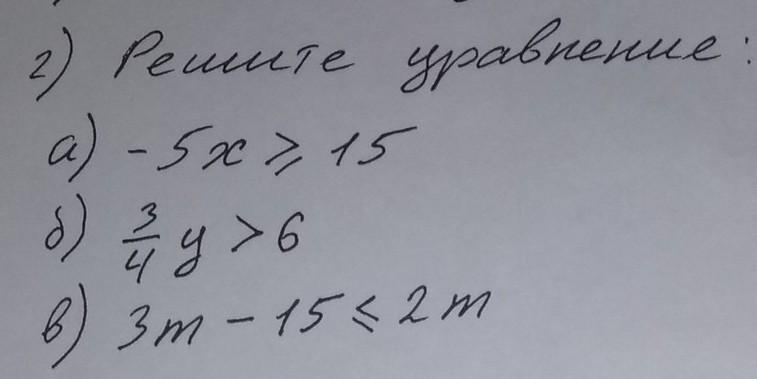 2) Решите уравнение:
а) -5x ⩾ 15
б) 3/4 y > 6
в) 3m - 15 ⩽ 2m